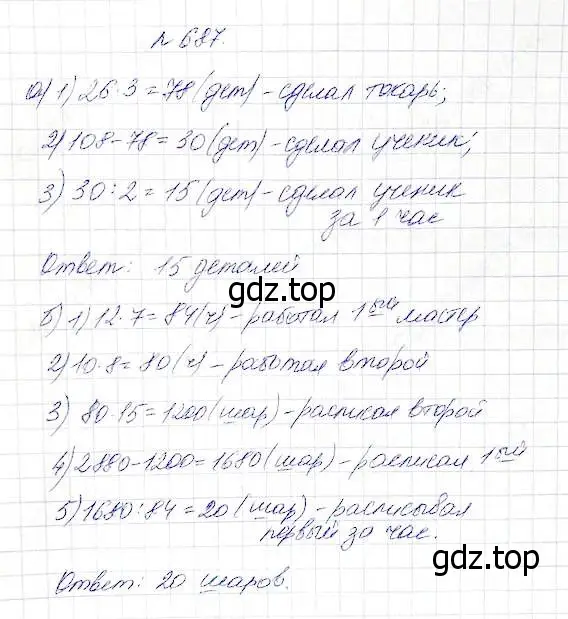 № 687.
а) 1) 26·3 = 78 (дет) - сделал токарь;
2) 108-78 = 30 (дет) - сделал ученик;
3) 30:2 = 15 (дет) - сделал ученик
за 1 час
Ответ: 15 деталей
gdz.top
б) 1) 12·7 = 84 (ч) - работал 1ый мастер
2) 10·8 = 80 (ч) - работал второй
3) 80·15 = 1200 (шар) - расписал второй
4) 2880-1200 = 1680 (шар) - расписал 1ый
5) 1680:84 = 20 (шар) - расписывал
первый за час.
gdz.top
Ответ: 20 шаров.